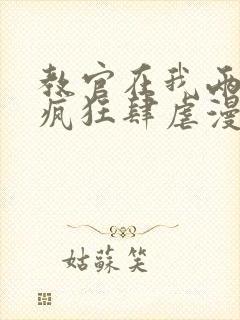 教官在我两
疯狂肆虐漫
姑蘇笑